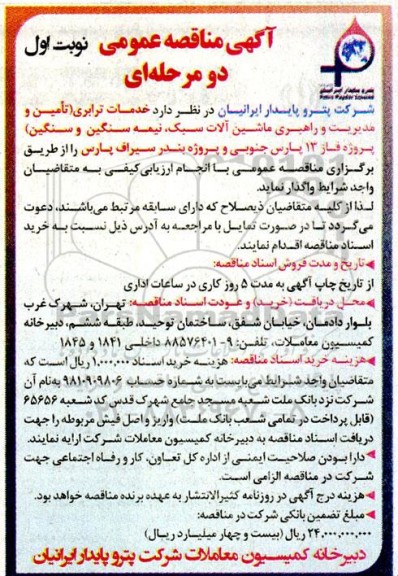 آگهی مناقصه عمومی نوبت اول
دو مرحله‌ای
پترو پایدار ایرانیان
Petro Paydar Iranian
شرکت پترو پایدار ایرانیان در نظر دارد خدمات ترابری(تأمین و
مدیریت و راهبری ماشین آلات سبک، نیمه سنگین و سنگین)
پروژه فاز ۱۳ پارس جنوبی و پروژه بندر سیراف پارس را از طریق
برگزاری مناقصه عمومی با انجام ارزیابی کیفی به متقاضیان
واجد شرایط واگذار نماید.
لذا از کلیه متقاضیان ذیصلاح که دارای سابقه مرتبط می‌باشند، دعوت
می‌گردد تا در صورت تمایل با مراجعه به آدرس ذیل نسبت به خرید
اسناد مناقصه اقدام نمایند.
◄تاریخ و مدت فروش اسناد مناقصه:
از تاریخ چاپ آگهی به مدت ۵ روز کاری در ساعات اداری
◄محل دریافت (خرید) و عودت اسناد مناقصه: تهران، شهرک غرب
بلوار دادمان، خیابان شفق، ساختمان توحید، طبقه ششم، دبیرخانه
کمیسیون معاملات، تلفن: ۹-۸۸۵۷۶۴۰۱ داخلی ۱۸۴۱ و ۱۸۴۵
◄هزینه خرید اسناد مناقصه: هزینه خرید اسناد ۱،۰۰۰،۰۰۰ ریال است که
متقاضیان واجد شرایط می‌بایست به شماره حساب ۹۸۱۰۹۰۹۸۰۶ به‌نام آن
شرکت نزد بانک ملت شعبه مسجد جامع شهرک قدس کد شعبه ۶۵۶۵۶
(قابل پرداخت در تمامی شعب بانک ملت) واریز و اصل فیش مربوطه را جهت
دریافت اسناد مناقصه به دبیرخانه کمیسیون معاملات شرکت ارایه نمایند.
◄دارا بودن صلاحیت ایمنی از اداره کل تعاون، کار و رفاه اجتماعی جهت
شرکت در مناقصه الزامی است.
◄هزینه درج آگهی در روزنامه کثیرالانتشار به عهده برنده مناقصه خواهد بود.
◄مبلغ تضمین بانکی شرکت در مناقصه:
۲۴،۰۰۰،۰۰۰،۰۰۰ ریال (بیست و چهار میلیارد ریال)
دبیرخانه کمیسیون معاملات شرکت پترو پایدار ایرانیان